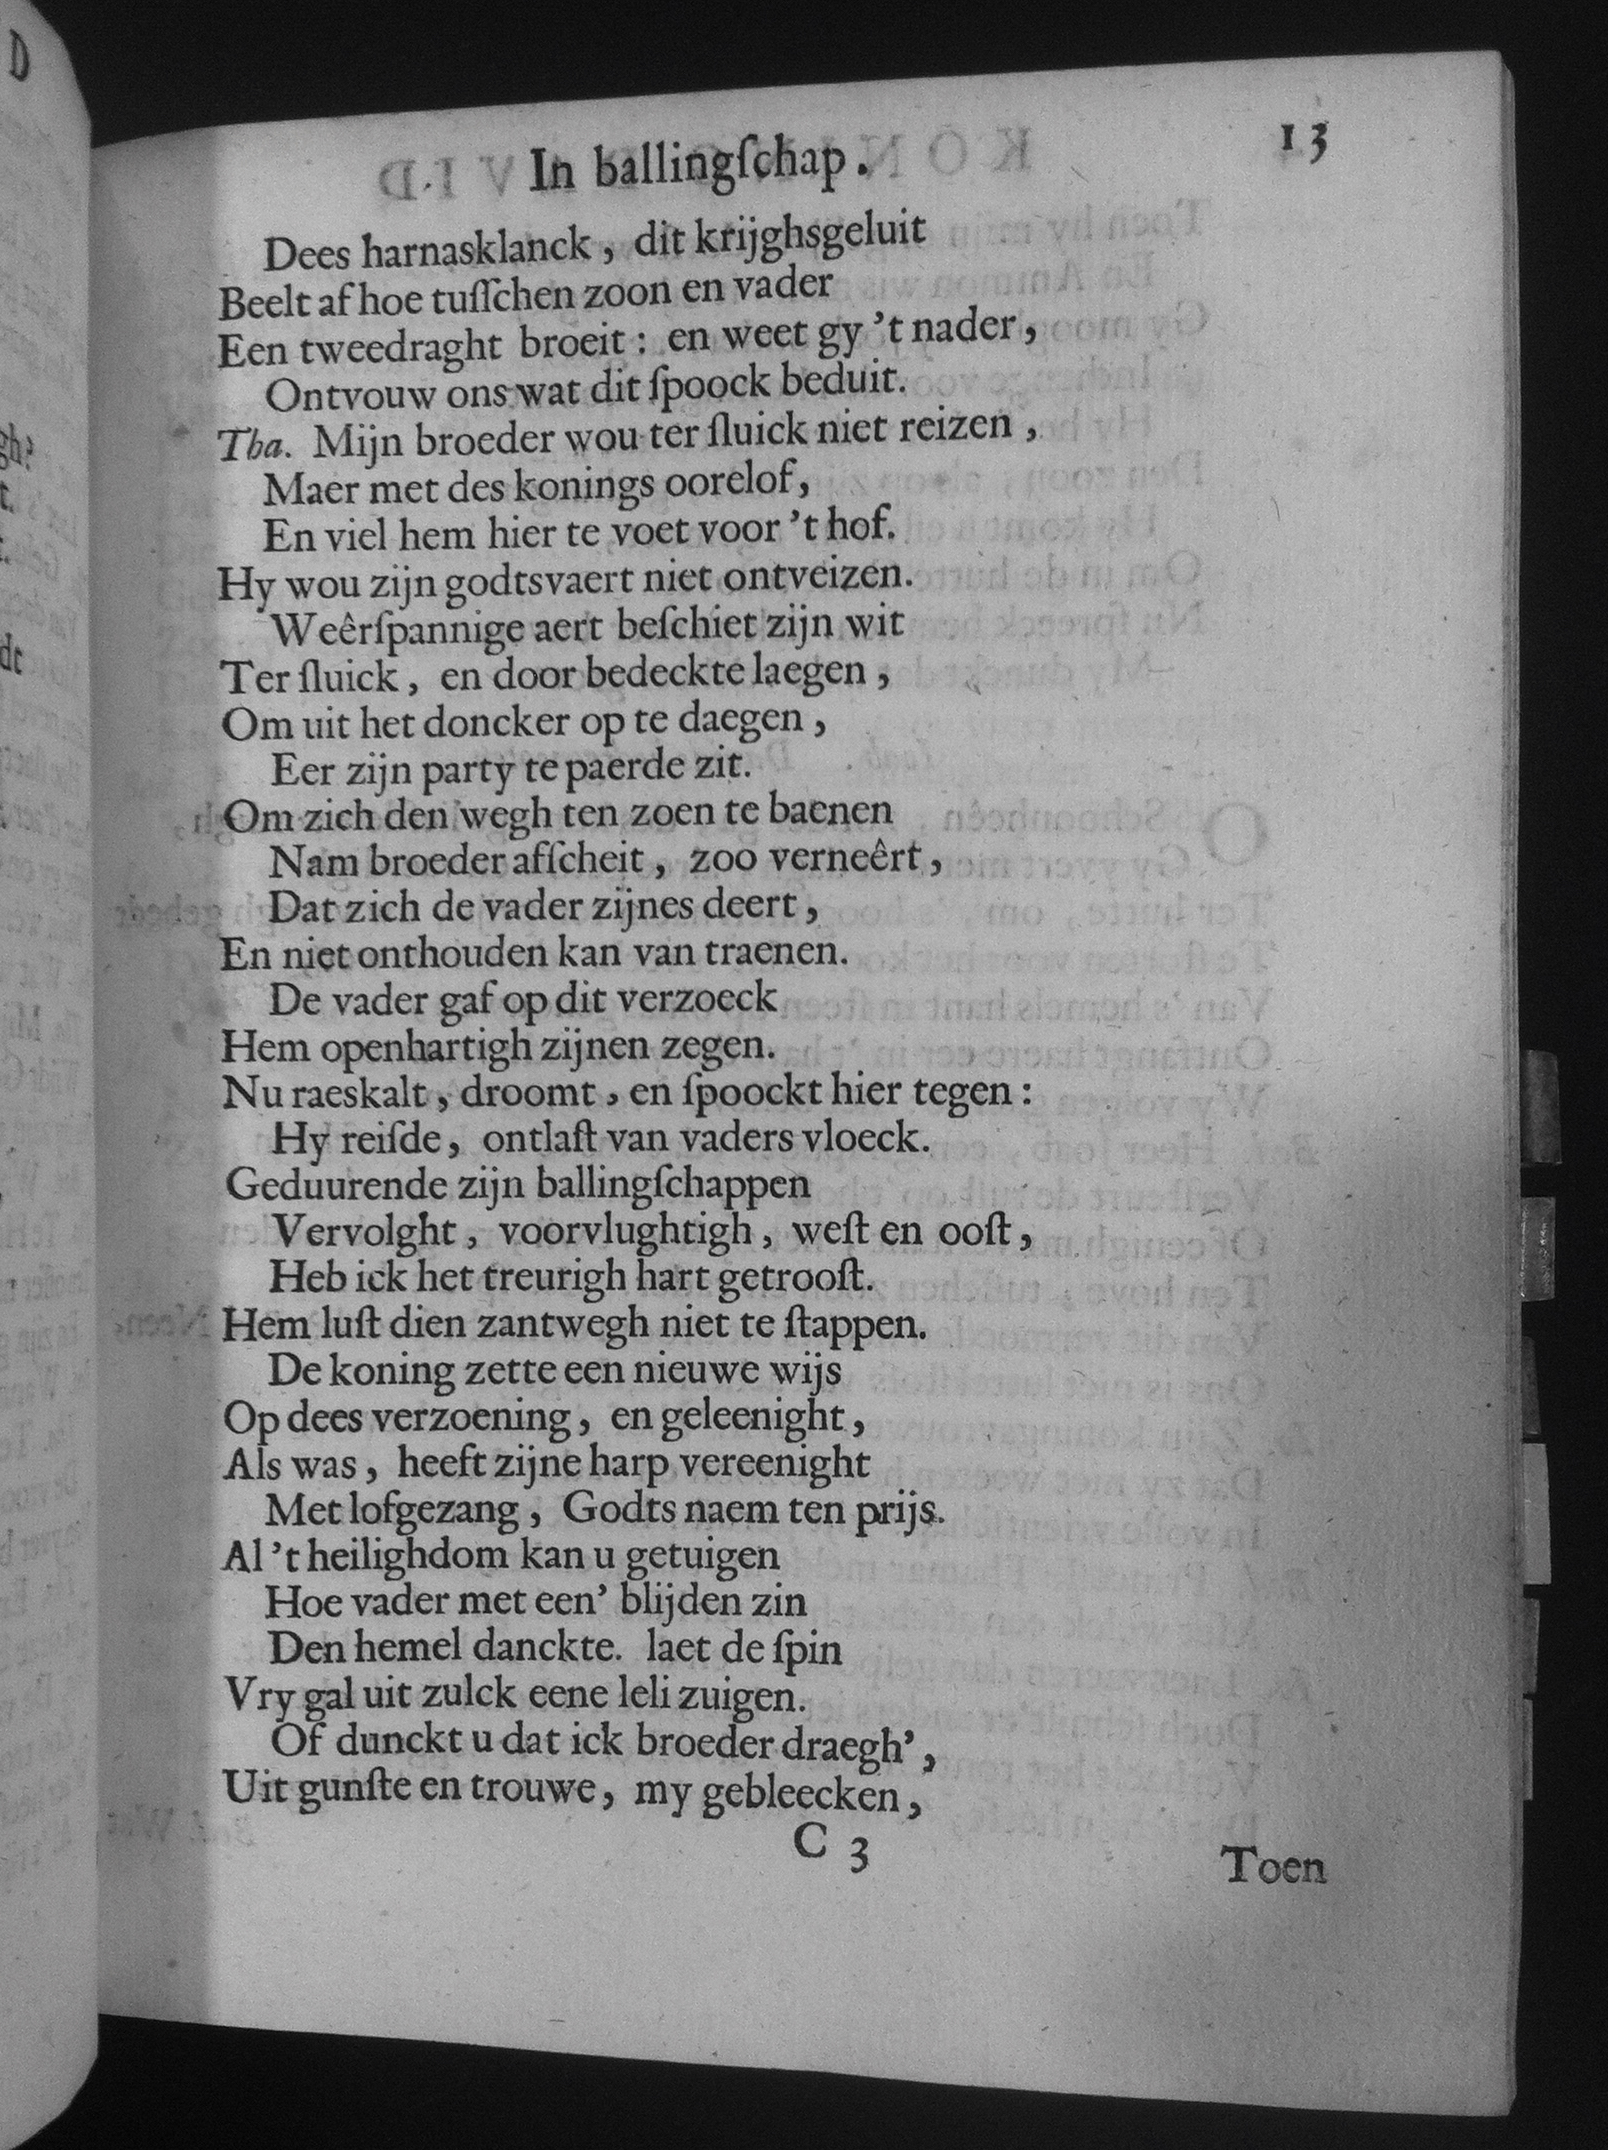 In ballingſchap. 13
Dees harnasklanck, dit krijghsgeluit
Beelt af hoe tuſſchen zoon en vader
Een tweedraght broeit: en weet gy 't nader,
Ontvouw ons wat dit ſpoock beduit.
Tha. Mijn broeder wou ter ſluick niet reizen,
Maer met des konings oorelof,
En viel hem hier te voet voor 't hof.
Hy wou zijn godtsvaert niet ontveizen.
Weêrſpannige aert beſchiet zijn wit
Ter ſluick, en door bedeckte laegen,
Om uit het doncker op te daegen,
Eer zijn party te paerde zit.
Om zich den wegh ten zoen te baenen
Nam broeder afſcheit, zoo verneêrt,
Dat zich de vader zijnes deert,
En niet onthouden kan van traenen.
De vader gaf op dit verzoeck
Hem openhartigh zijnen zegen.
Nu raeskalt, droomt, en ſpoockt hier tegen:
Hy reiſde, ontlaſt van vaders vloeck.
Geduurende zijn ballingſchappen
Vervolght, voorvlughtigh, weſt en ooſt,
Heb ick het treurigh hart getrooſt.
Hem luſt dien zantwegh niet te ſtappen.
De koning zette een nieuwe wijs
Op dees verzoening, en geleenight,
Als was, heeft zijne harp vereenight
Met lofgezang, Godts naem ten prijs.
Al 't heilighdom kan u getuigen
Hoe vader met een' blijden zin
Den hemel danckte. laet de ſpin
Vry gal uit zulck eene leli zuigen.
Of dunckt u dat ick broeder draegh',
Uit gunſte en trouwe, my gebleecken,
C 3
Toen